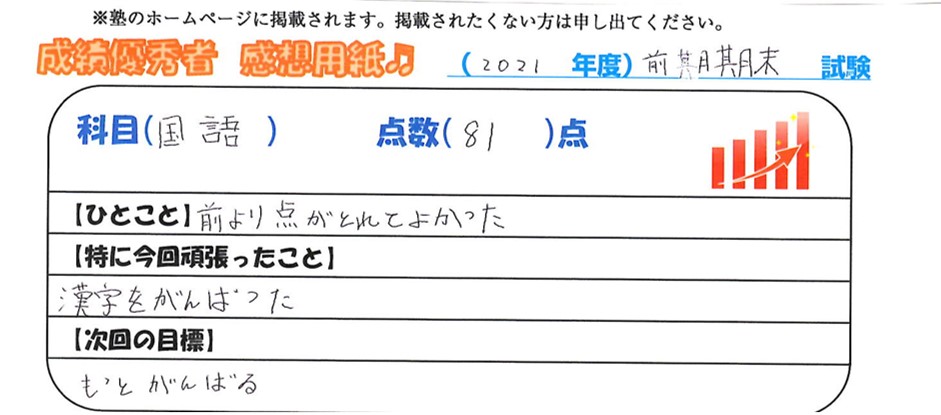 ※塾のホームページに掲載されます。掲載されたくない方は申し出てください。
成績優秀者 感想用紙♫ (2021 年度)前期期末 試験
科目(国語) 点数(81)点
【ひとこと】前より点がとれてよかった
【特に今回頑張ったこと】
漢字をがんばった
【次回の目標】
もっとがんばる